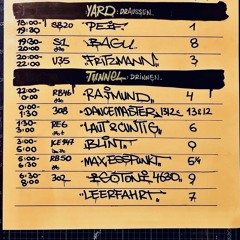 YARD: DRAUSSEN.
18:00- 19:30 SB20 PEER 1
19:30- 20:00 S1 BAGU 8
20:00- 22:00 U35 FRITZMANN 3
TUNNEL: DRINNEN.
22:00- 0:00 RB46 RAIMUND 4
0:00- 1:30 308 DANCEMASTER 13&12
1:30- 3:00 RE6 LAUT & CUNTIG 6
3:00- 5:00 ICE 947 BLINT 9
5:00- 6:30 RB50 MAX BEEPUNKT
6:30- 8:00 302 4630 9
LEERFAHRT 7